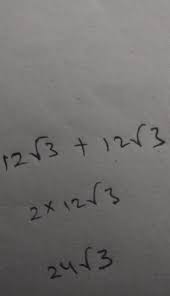 12√3 + 12√3
2×12√3
24√3